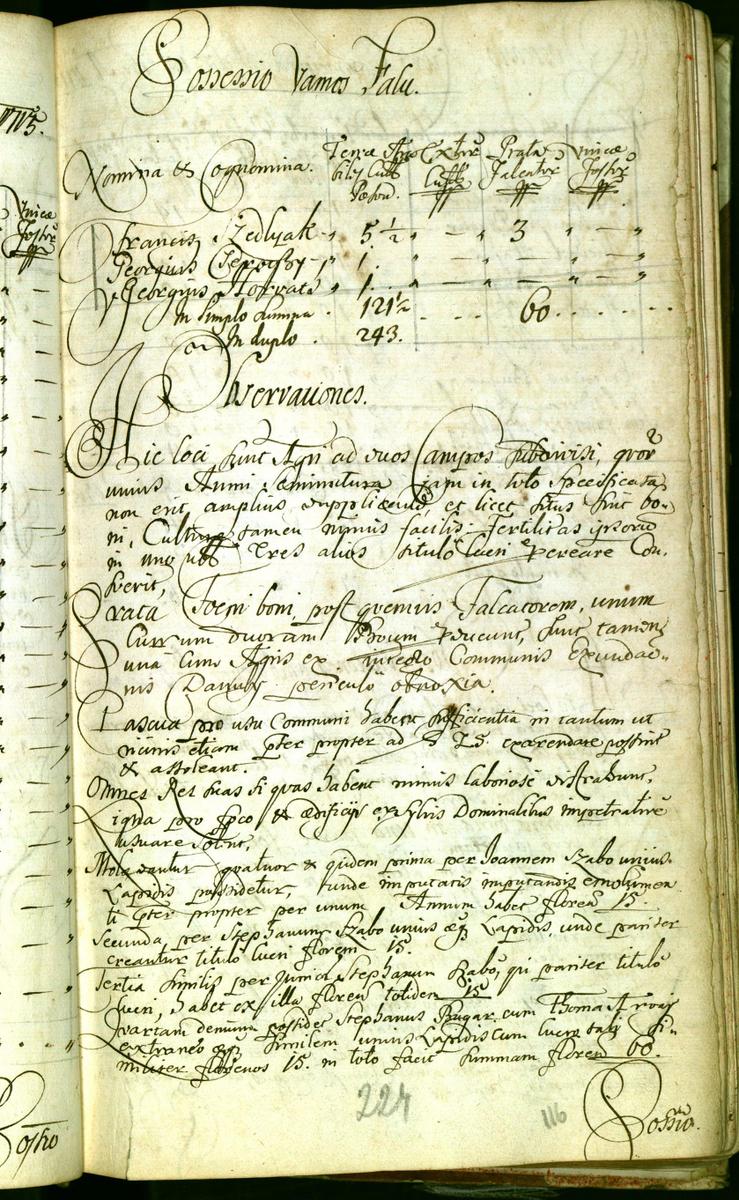 Possessio Vamos Falu.
Nomina & Cognomina.
Terræ Cult Poson.
Extr Cult
Prata Falcator
Vineæ Fossor
Francis Szedlyak " 5 1/2 " — " 3 " — "
Georgius " 1. " — " — " — "
Georgius Horvath " 1. " — " — " — "
In Simplo Summa . 121 1/2 . . . . 60 . . . . . .
In duplo . 243.
Observationes.
Hic loci sunt Agri ad duos Campos subdivisi, quor
unius Anni Seminatura jam in toto Specificata
non erit amplius et licet situs sint bo„
ni, Cultura tamen nimis facilis: fertilitas ipsorum
in uno Tres alios titulo lucri Con„
Prata Foeni boni, post quemvis Falcatorem, unum
Currum duorum Boum sunt tamen
una cum Agris ex Communis Exundatio„
nis Danubii periculo obnoxia.
Pascua pro usu Communi habent sufficientia in tantum ut
etiam præter propter ad f 25. exarendare possint
& assoleant.
Omnes Res suas si quas habent minus laboriose distrahunt,
Ligna pro foco & ædificijs ex Sylvis Dominalibus
usuare solent,
Molæ dantur quatuor & quidem prima per Joannem Szabo unius
Lapidis possidetur, unde imputatis imputandis emolumen
ti præter propter per unum Annum habet floren 15.
Secunda per Stephanum Szabo unius Lapidis, unde pariter
creantur titulo lucri floreni 15.
Tertia similis per Stephanum Szabo, qui pariter titulo
lucri, habet ex illa floren totidem 15
Quartam demum possidet Stephanus Bugar cum Thoma
extraneo similem unius Lapidis cum lucro Si„
militer florenos 15. in toto facit Summam floren 60.
224
116
Possessio.